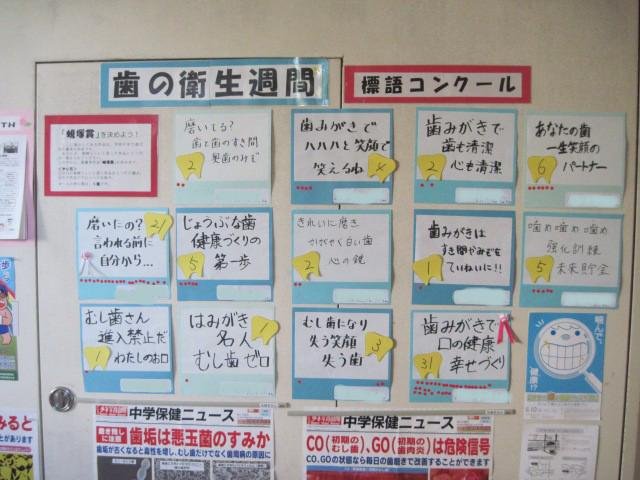 歯の衛生週間
標語コンクール
「蜆塚賞」を決めよう！
磨いてる？
歯と歯のすき間
奥歯のみぞ
2
歯みがきで
ハハハと笑顔で
笑えるね
4
歯みがきで
歯も清潔
心も清潔
2
あなたの歯
一生笑顔の
パートナー
6
磨いたの？
言われる前に
自分から…
21
じょうぶな歯
健康づくりの
第一歩
5
きれいに磨き
かがやく白い歯
心の鏡
2
歯みがきは
すき間やみぞを
ていねいに!!
1
噛め噛め噛め
強化訓練
未来貯金
5
むし歯さん
進入禁止だ
わたしのお口
1
はみがき
名人
むし歯ゼロ
1
むし歯になり
失う笑顔
失う歯
3
歯みがきで
口の健康
幸せづくり
31
噛んで、
健康!?
中学保健ニュース
歯垢は悪玉菌のすみか
歯垢が古くなると毒性を増し、むし歯だけでなく歯周病の原因に
中学保健ニュース
CO(初期のむし歯)、GO(初期の歯肉炎)は危険信号
CO、GOの状態なら毎日の歯磨きで改善することができます